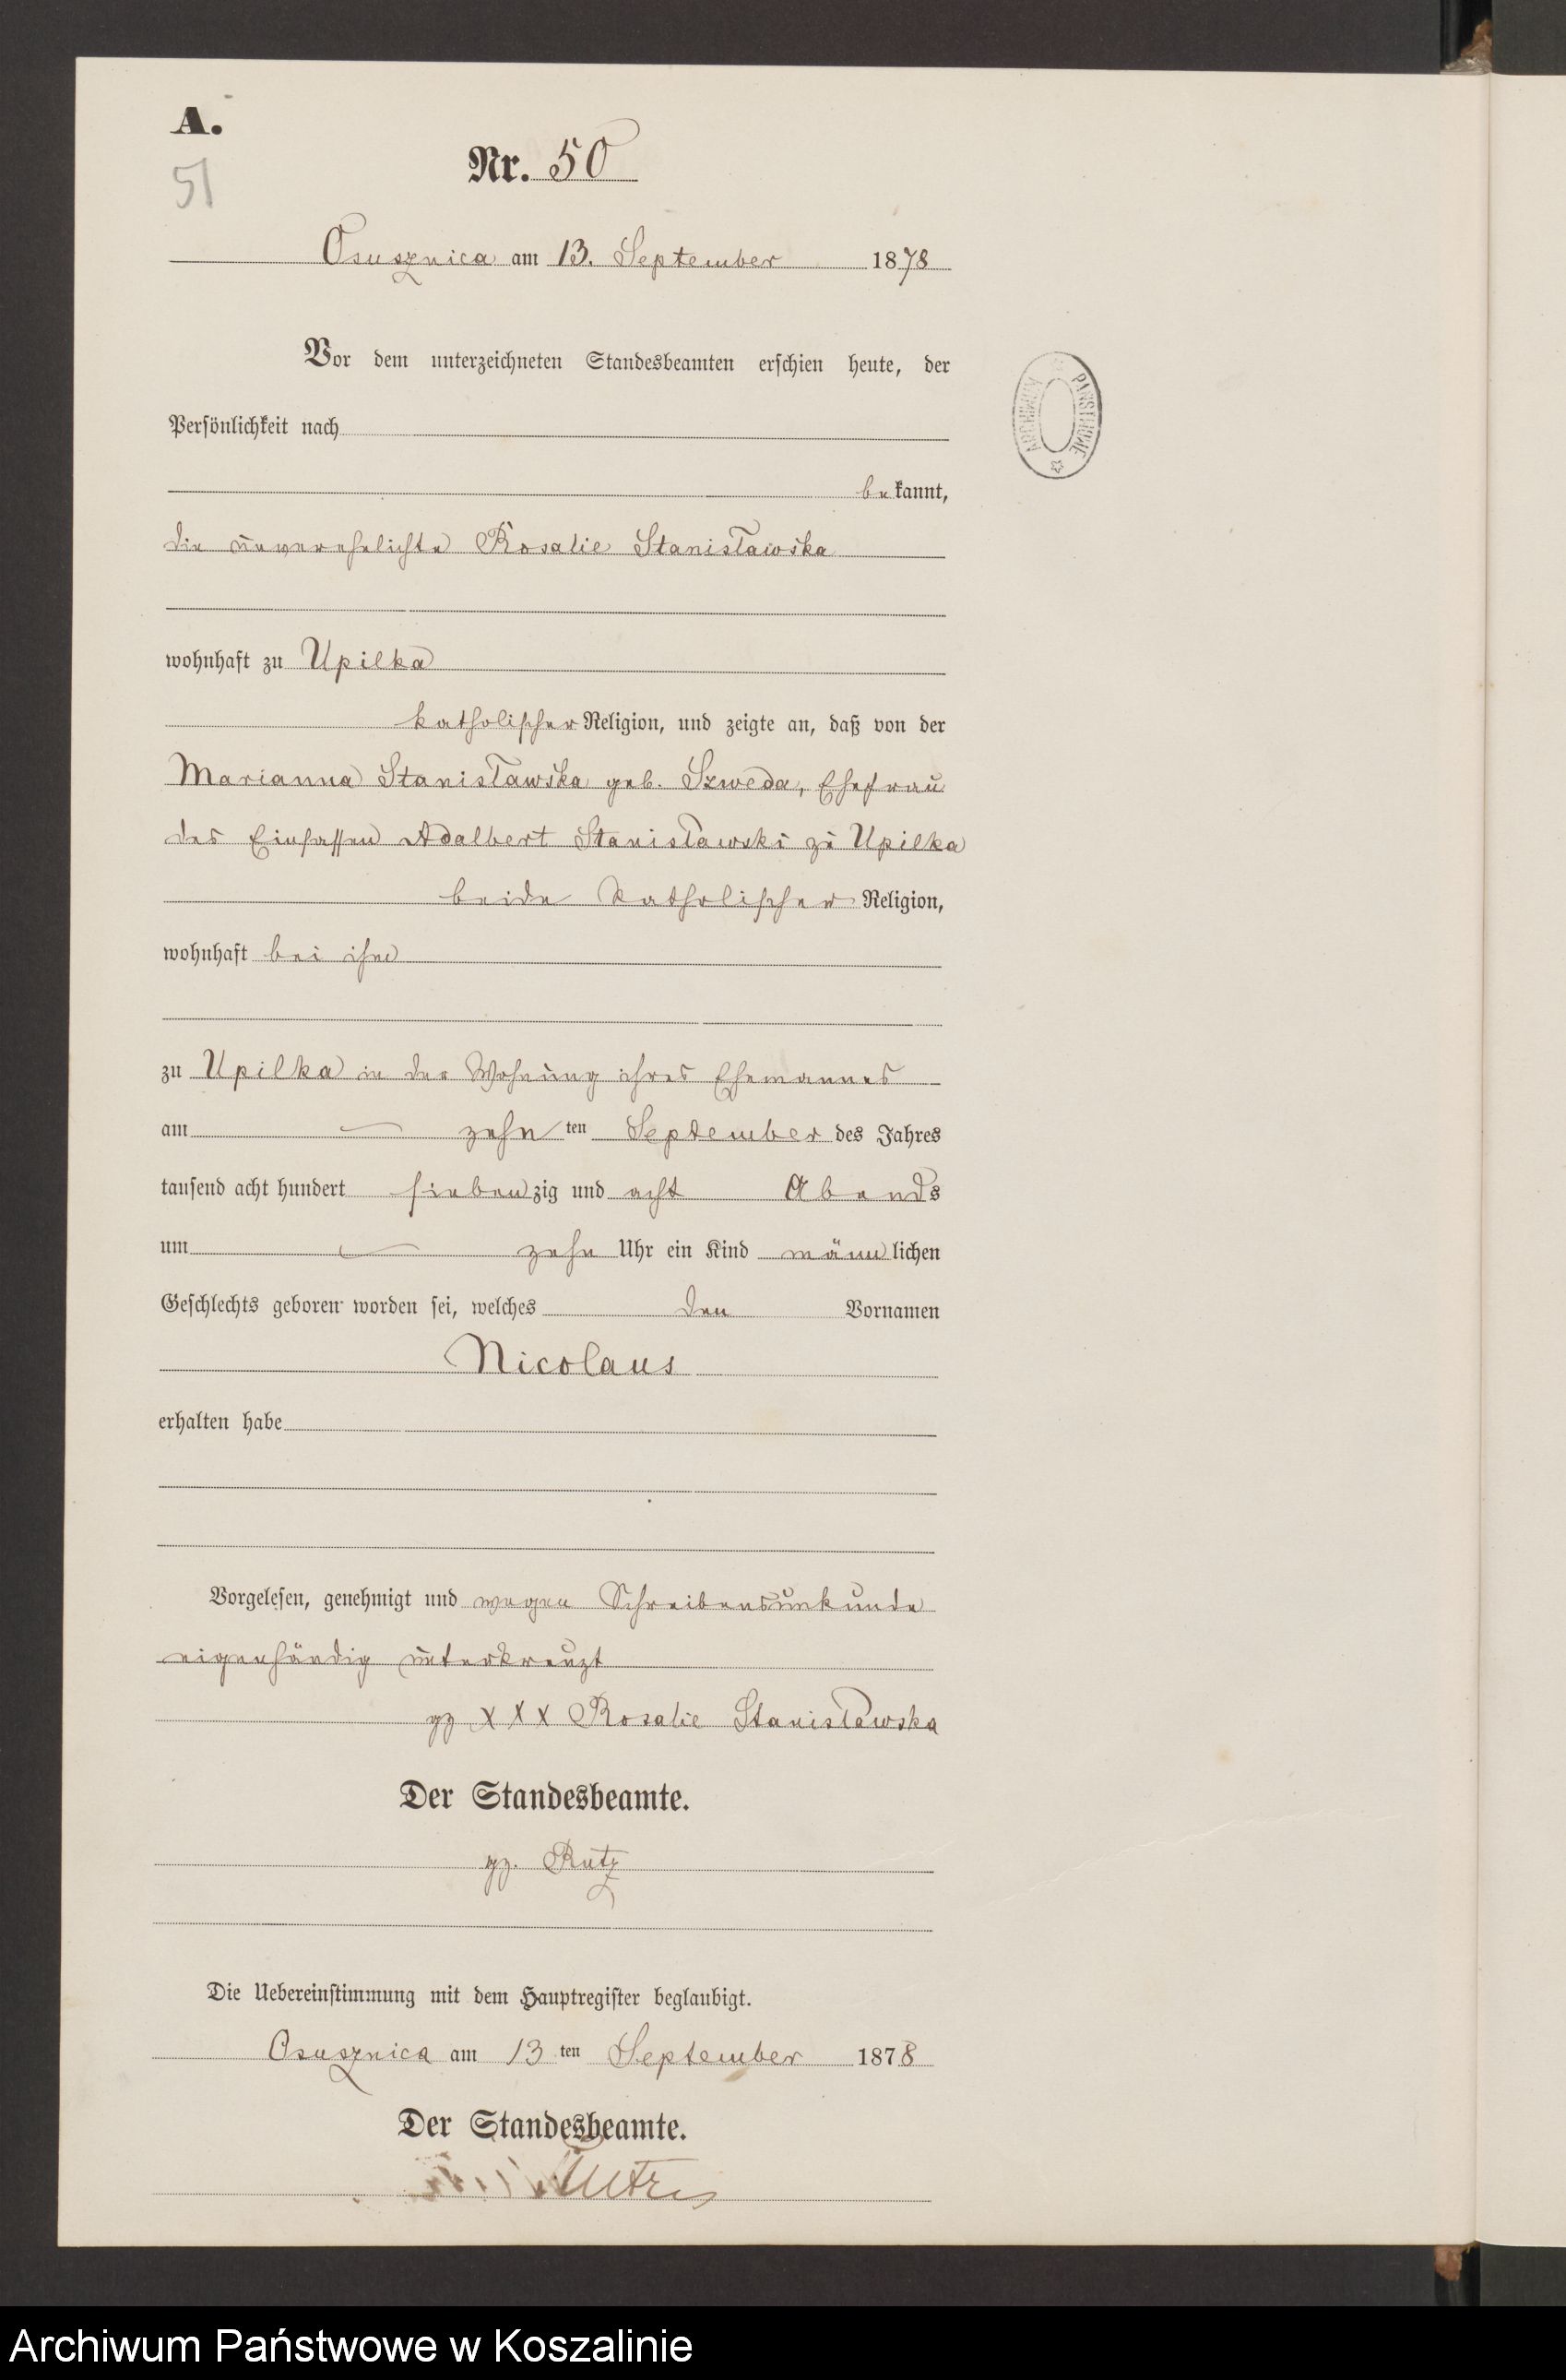 A.
51
Nr. 50
Osusznica am 13. September 1878
Vor dem unterzeichneten Standesbeamten erschien heute, der
Persönlichkeit nach
bekannt,
die unverehelichte Rosalie Stanisławska
wohnhaft zu Upilka
katholischer Religion, und zeigte an, daß von der
Marianna Stanisławska geb. Szweda, Ehefrau
des Einsassen Adalbert Stanisławski zu Upilka
beide katholischer Religion,
wohnhaft bei ihm
zu Upilka in der Wohnung ihres Ehemannes
am zehnten September des Jahres
tausend acht hundert siebenzig und acht Abends
um zehn Uhr ein Kind männlichen
Geschlechts geboren worden sei, welches den Vornamen
Nicolaus
erhalten habe
Vorgelesen, genehmigt und wegen Schreibensunkunde
eigenhändig unterkreuzt
gz XXX Rosalie Stanisławska
Der Standesbeamte.
gz. Rutz
Die Uebereinstimmung mit dem Hauptregister beglaubigt.
Osusznica am 13ten September 1878
Der Standesbeamte.
ARCHIWUM PAŃSTWOWE
Archiwum Państwowe w Koszalinie